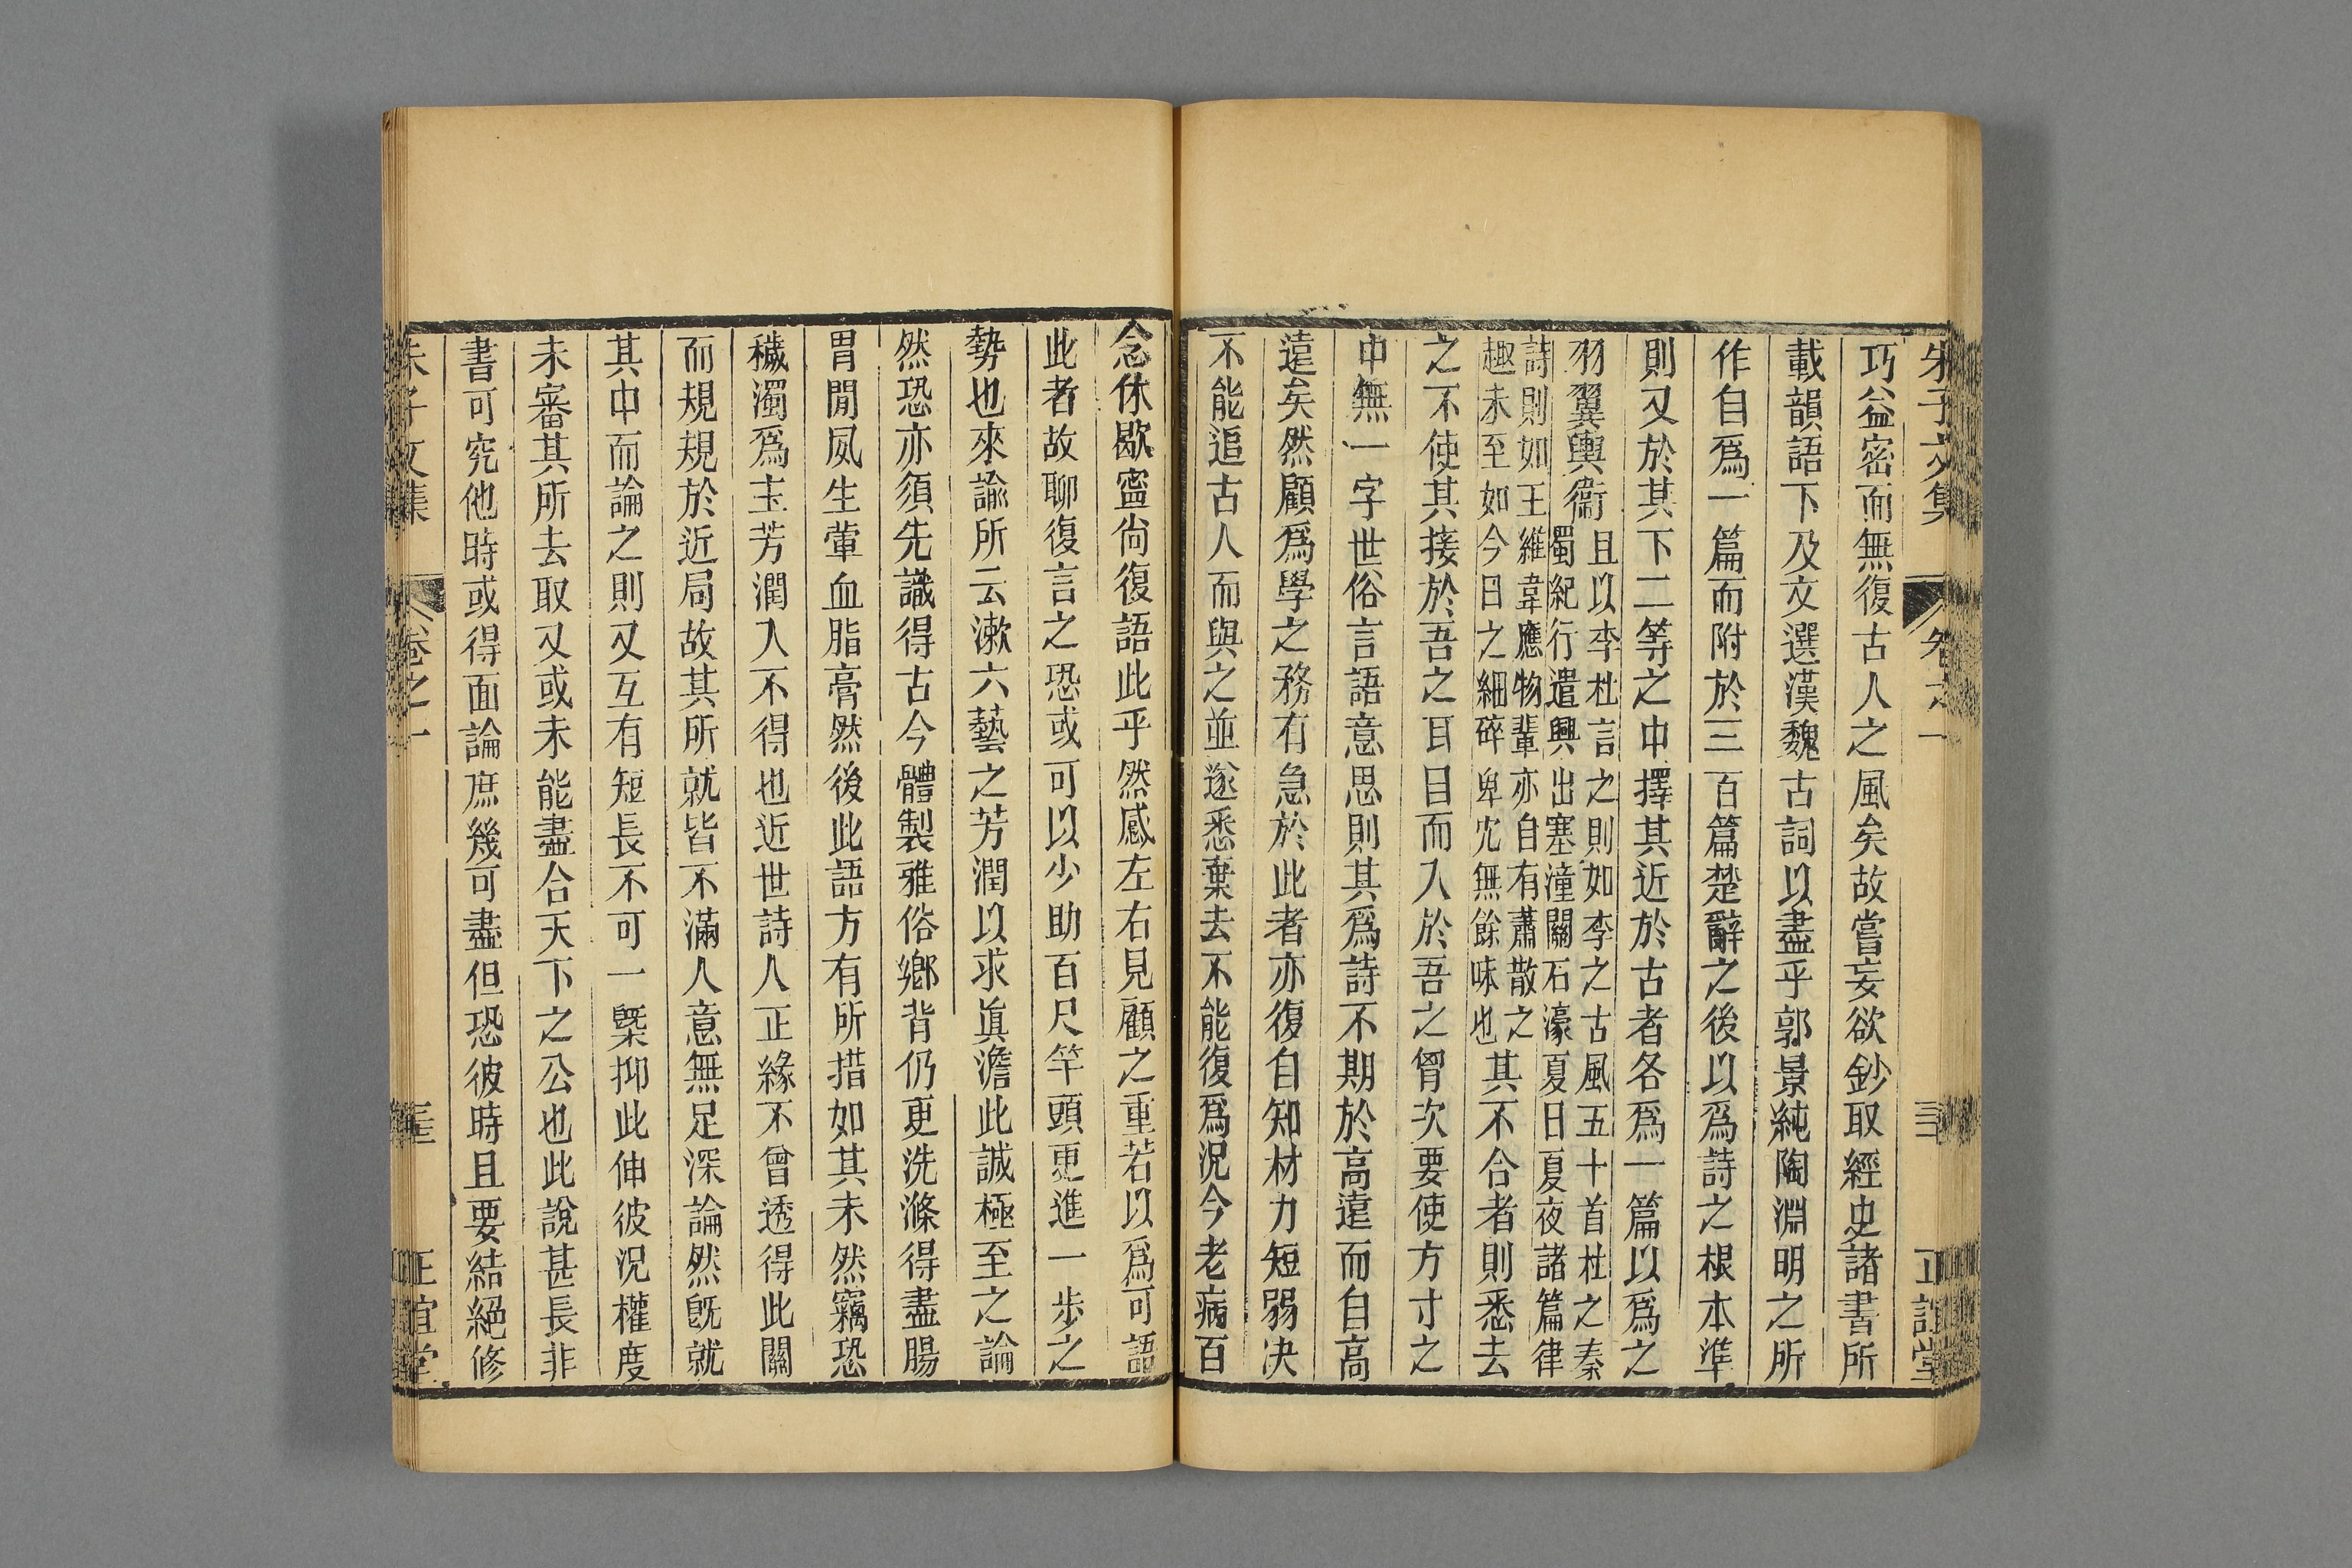 朱子文集 卷之一 正誼堂
巧益密而無復古人之風矣故嘗妄欲鈔取經史諸書所
載韻語下及文選漢魏古詞以盡乎郭景純陶淵明之所
作自爲一篇而附於三百篇楚辭之後以爲詩之根本準
則又於其下二等之中擇其近於古者各爲一篇以爲之
羽翼輿衞
且以李杜言之則如李之古風五十首杜之秦
蜀紀行遣興出塞潼關石濠夏日夏夜諸篇律
詩則如王維韋應物輩亦自有蕭散之
趣未至如今日之細碎卑冗無餘味也
其不合者則悉去
之不使其接於吾之耳目而入於吾之胷次要使方寸之
中無一字世俗言語意思則其爲詩不期於高遠而自高
遠矣然顧爲學之務有急於此者亦復自知材力短弱决
不能追古人而與之並遂悉棄去不能復爲況今老病百
念休歇寧尙復語此乎然感左右見顧之重若以爲可語
此者故聊復言之恐或可以少助百尺竿頭更進一步之
勢也來諭所云漱六藝之芳潤以求眞澹此誠極至之論
然恐亦須先識得古今體製雅俗鄉背仍更洗滌得盡腸
胃閒夙生葷血脂膏然後此語方有所措如其未然竊恐
穢濁爲主芳潤入不得也近世詩人正緣不曾透得此關
而規規於近局故其所就皆不滿人意無足深論然旣就
其中而論之則又互有短長不可一槩抑此伸彼況權度
未審其所去取又或未能盡合天下之公也此說甚長非
書可究他時或得面論庶幾可盡但恐彼時且要結絕修
朱子文集 卷之一 正誼堂